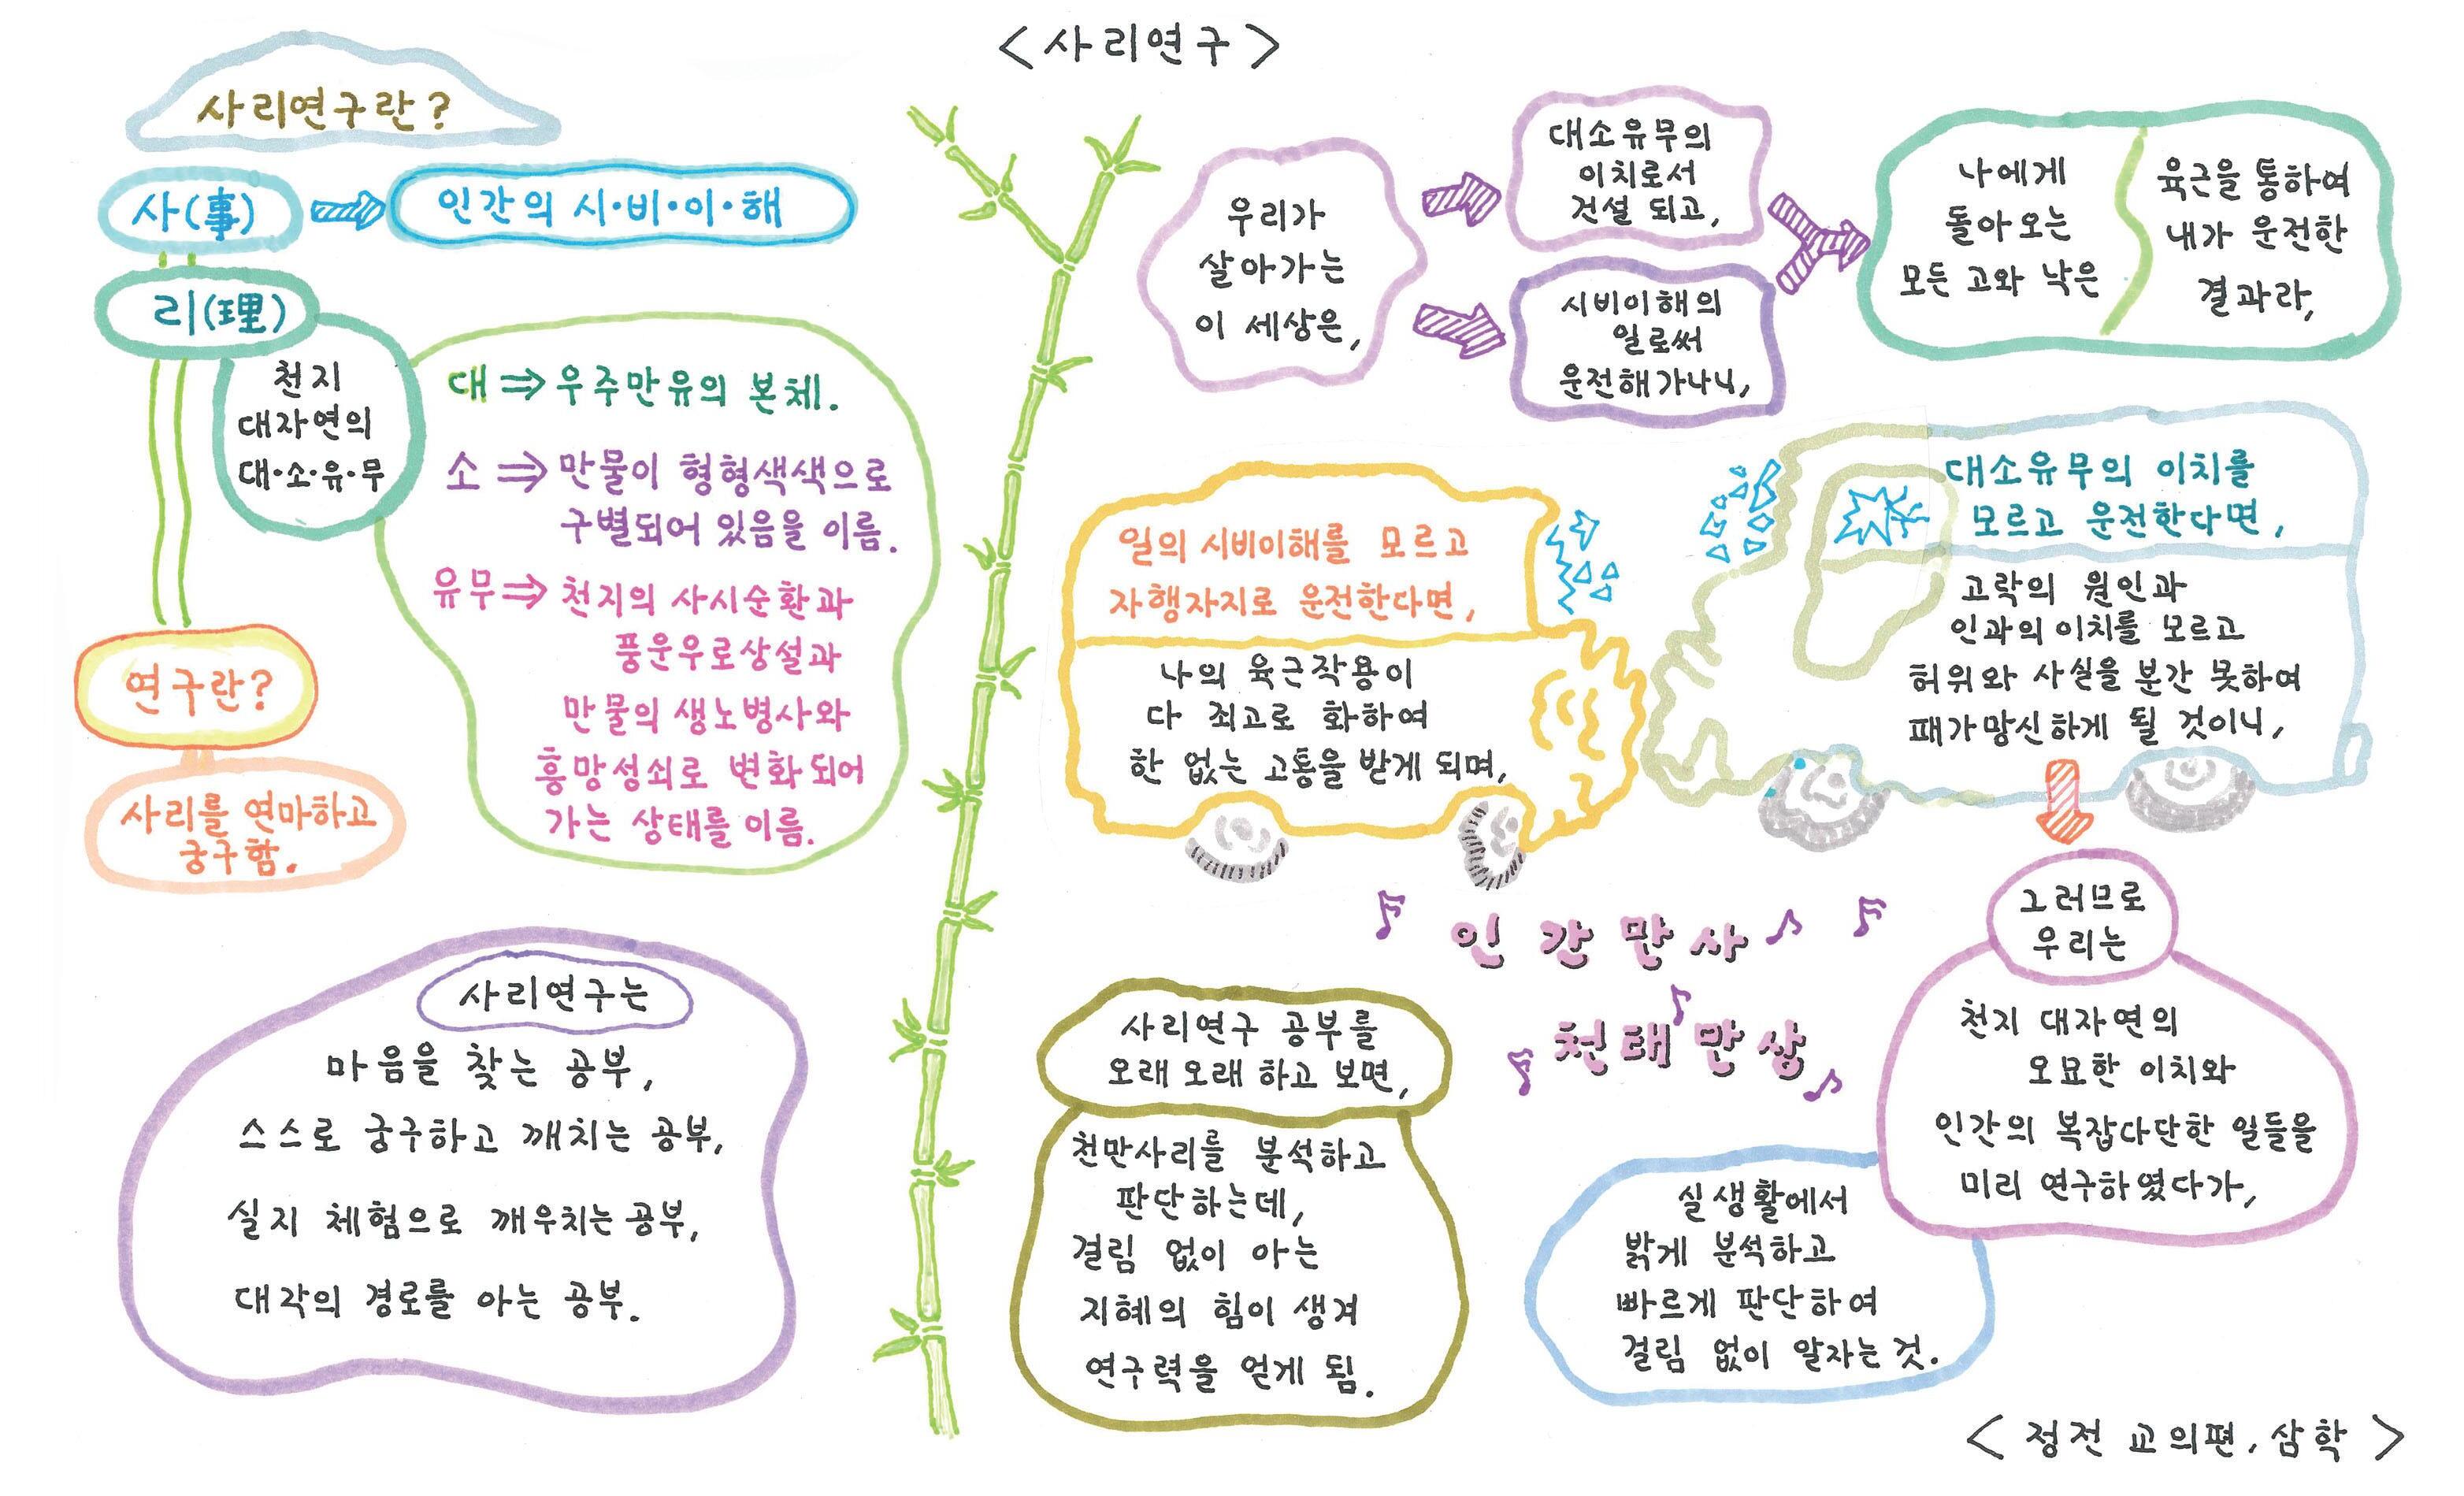 < 사리연구 >
사리연구란?
사(事)
인간의 시·비·이·해
리(理)
천지
대자연의
대·소·유·무
대 ⇒ 우주만유의 본체.
소 ⇒ 만물이 형형색색으로
구별되어 있음을 이름.
유무 ⇒ 천지의 사시순환과
풍운우로상설과
만물의 생노병사와
흥망성쇠로 변화되어
가는 상태를 이름.
연구란?
사리를 연마하고
궁구함.
사리연구는
마음을 찾는 공부,
스스로 궁구하고 깨치는 공부,
실지 체험으로 깨우치는 공부,
대각의 경로를 아는 공부.
우리가
살아가는
이 세상은,
대소유무의
이치로서
건설 되고,
시비이해의
일로써
운전해가나니,
나에게
돌아오는
모든 고와 낙은
육근을 통하여
내가 운전한
결과라,
일의 시비이해를 모르고
자행자지로 운전한다면,
나의 육근작용이
다 죄고로 화하여
한 없는 고통을 받게 되며,
대소유무의 이치를
모르고 운전한다면,
고락의 원인과
인과의 이치를 모르고
허위와 사실을 분간 못하여
패가망신하게 될 것이니,
그러므로
우리는
천지 대자연의
오묘한 이치와
인간의 복잡다단한 일들을
미리 연구하였다가,
실생활에서
밝게 분석하고
빠르게 판단하여
걸림 없이 알자는 것.
인간만사
천태만상
사리연구 공부를
오래오래 하고 보면,
천만사리를 분석하고
판단하는데,
걸림 없이 아는
지혜의 힘이 생겨
연구력을 얻게 됨.
< 정전 교의편, 삼학 >